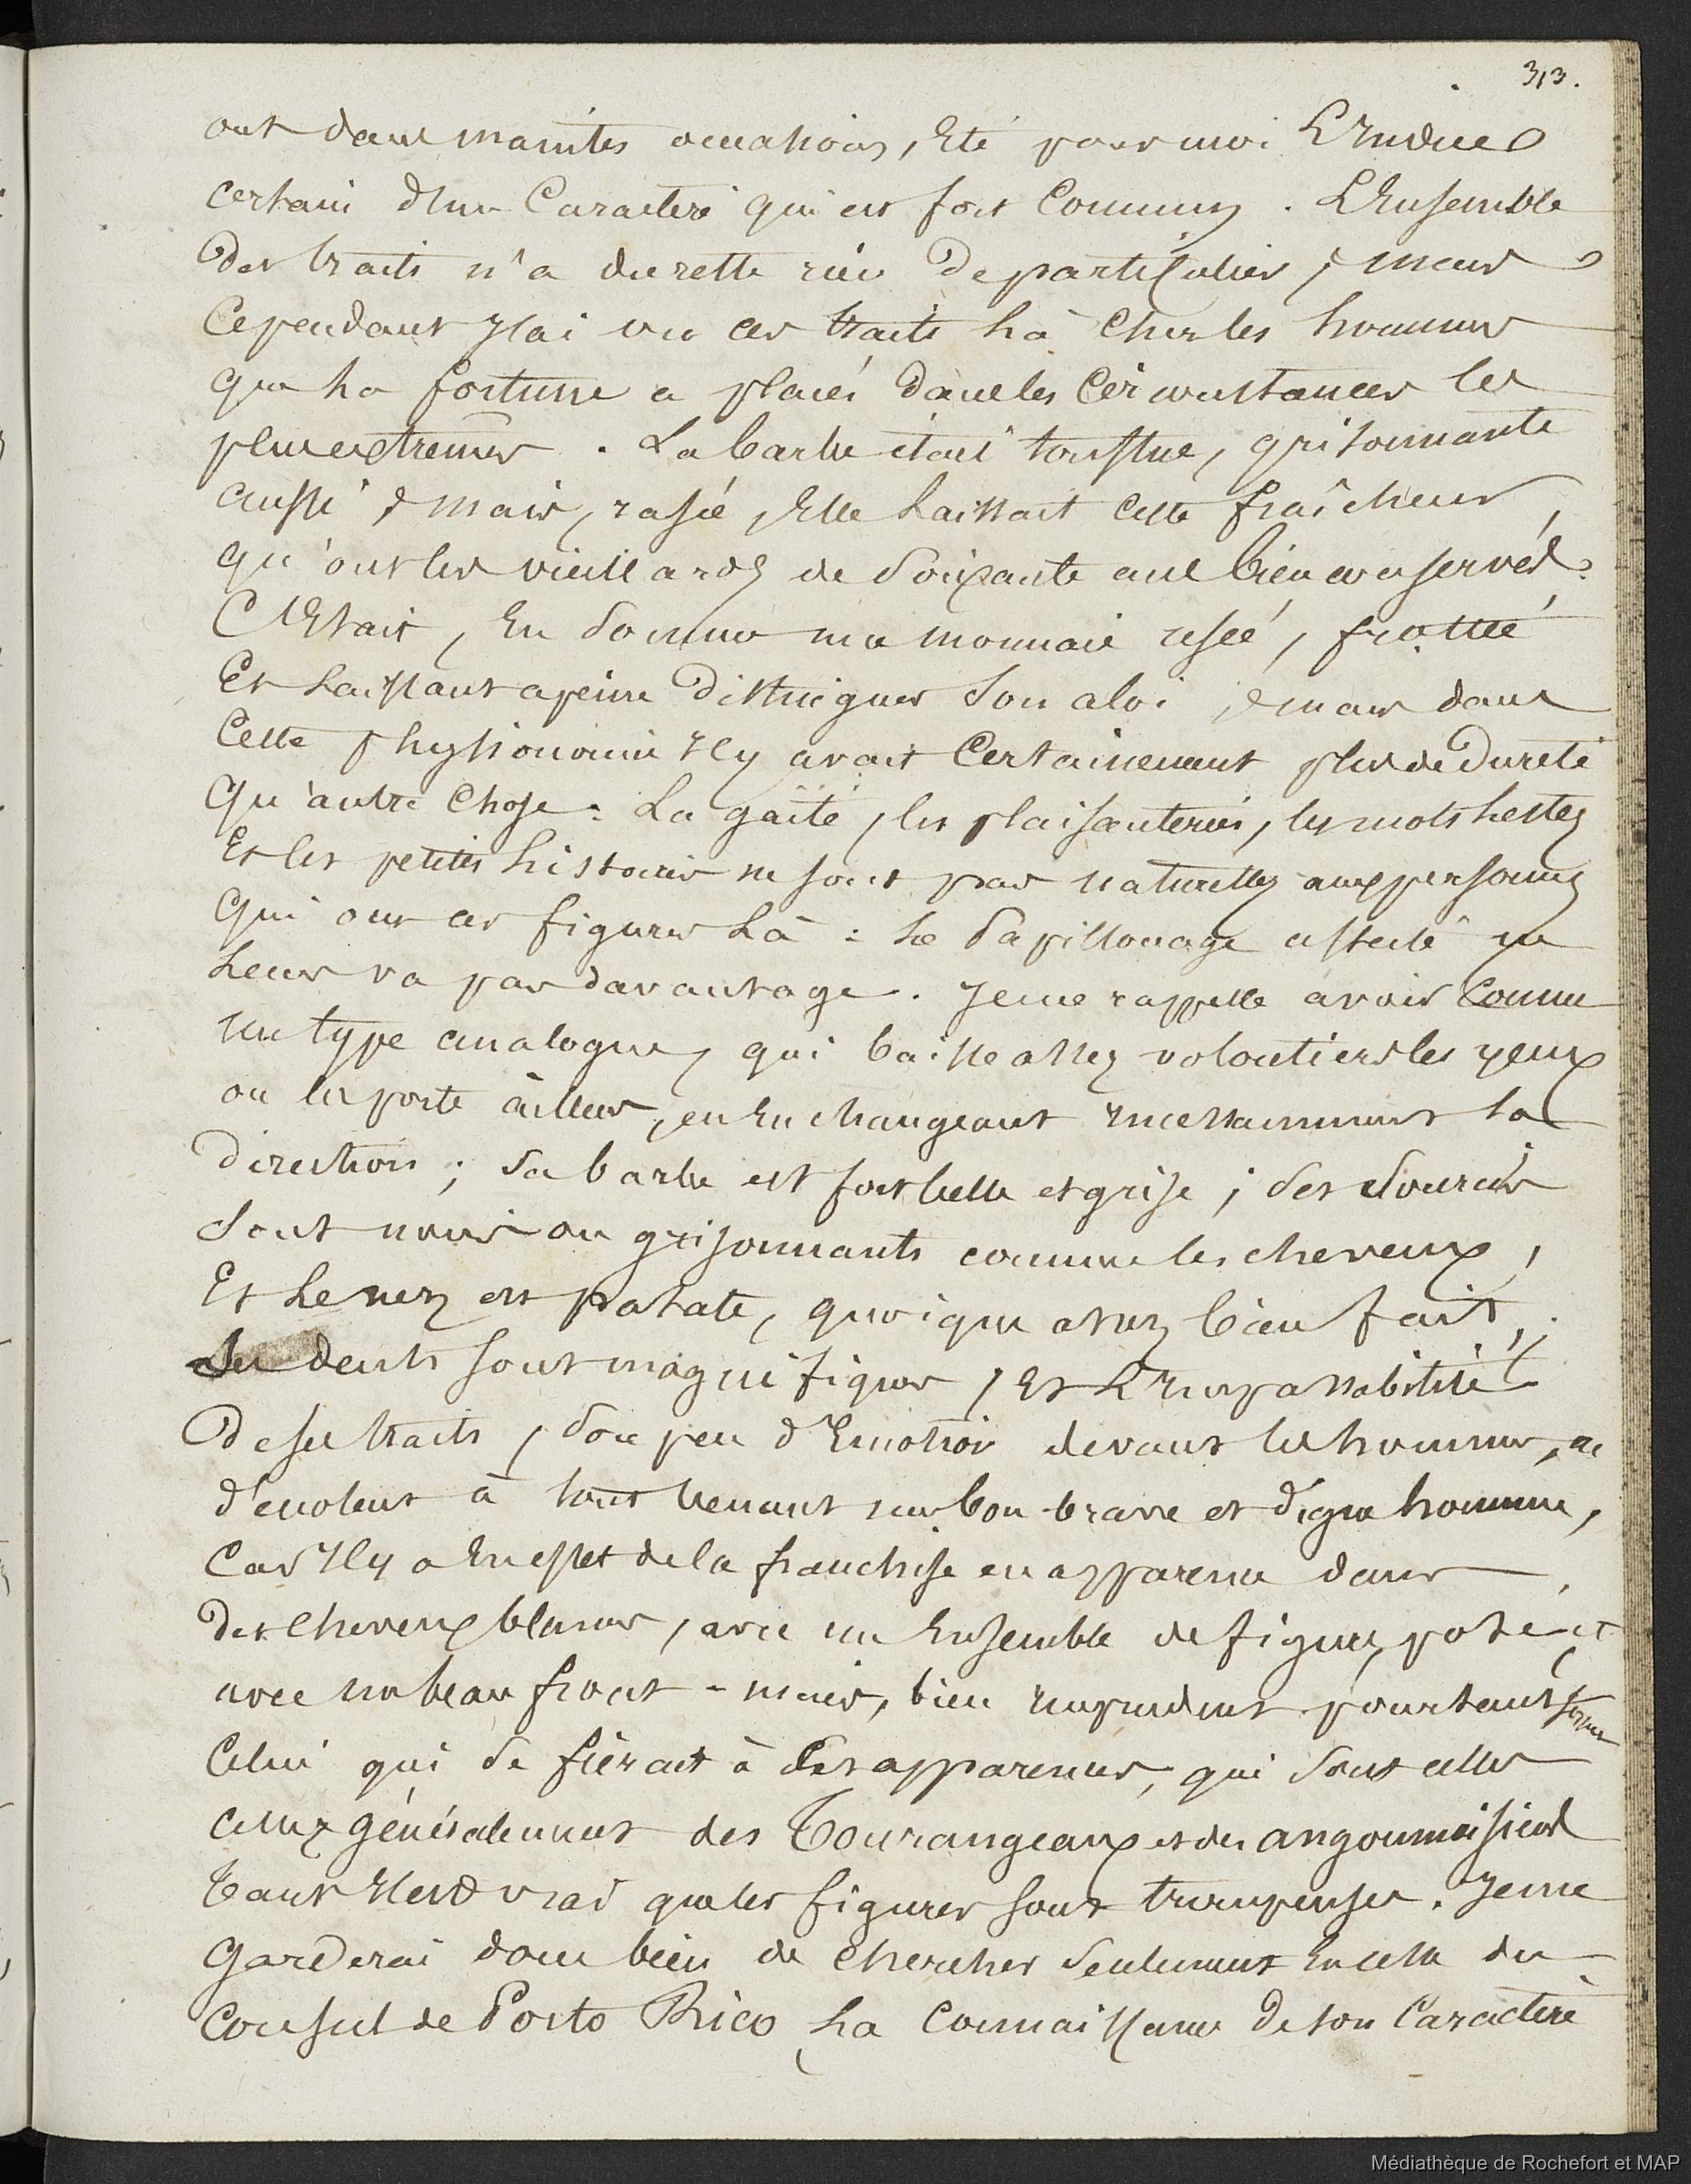 313.
ont dans maintes occasions, Eté pour moi L'Indice
certain d'un Caractere qui est fort Commun. L'Ensemble
des traits n'a du reste rien de particulier, mais
Cependant J'ai vu ces traits là chez les hommes
que la fortune a placés dans les Circonstances les
plus extremes. La barbe était touffue, grisonnante
aussi, mais, rasée, Elle laissait cette fraîcheur
qu'ont les vieillards de Soixante ans bien conservés.
C'Etait, En Somme une monnaie usée, frottée
Et Laissant apeine distinguer Son aloi, mais dans
Cette physionomie Il y avait Certainement plus de dureté
qu'autre Chose. La gaîté, les plaisanteries, les mots lestes
Et les petites histoires ne sont pas naturelles aux personnes
qui ont ces figures là : le Papillonage affecté ne
leur va pas davantage. Je me rappelle avoir Connu
un type analogue, qui baisse assez volontiers les yeux
ou les porte ailleurs, en En changeant Incessamment la
direction ; Sa barbe est fort belle et grise ; Ses Sourcis
Sont noirs ou grisonnants comme les cheveux,
Et Le nez est patate, quoique assez bien fait ;
Ses dents sont magnifiques, Et L'Impassibilité
de ses traits, Son peu d'Emotion devant les hommes,
dénotent à tout venant un bon brave et digne homme,
Car Il y a En effet de la franchise en apparence dans
des cheveux blancs, avec un Ensemble de figure posé et
avec un beau front - mais, bien Imprudent pourtant serait
Celui qui Se fierait à Ses apparences, qui Sont celles
assez généralement des Tourangeaux et des angoumoisiens
Tant Il est vrai que les figures sont trompeuses. Je me
garderai donc bien de chercher Seulement En celle du
Consul de Porto Rico La Connaissance de son Caractère
Médiathèque de Rochefort et MAP